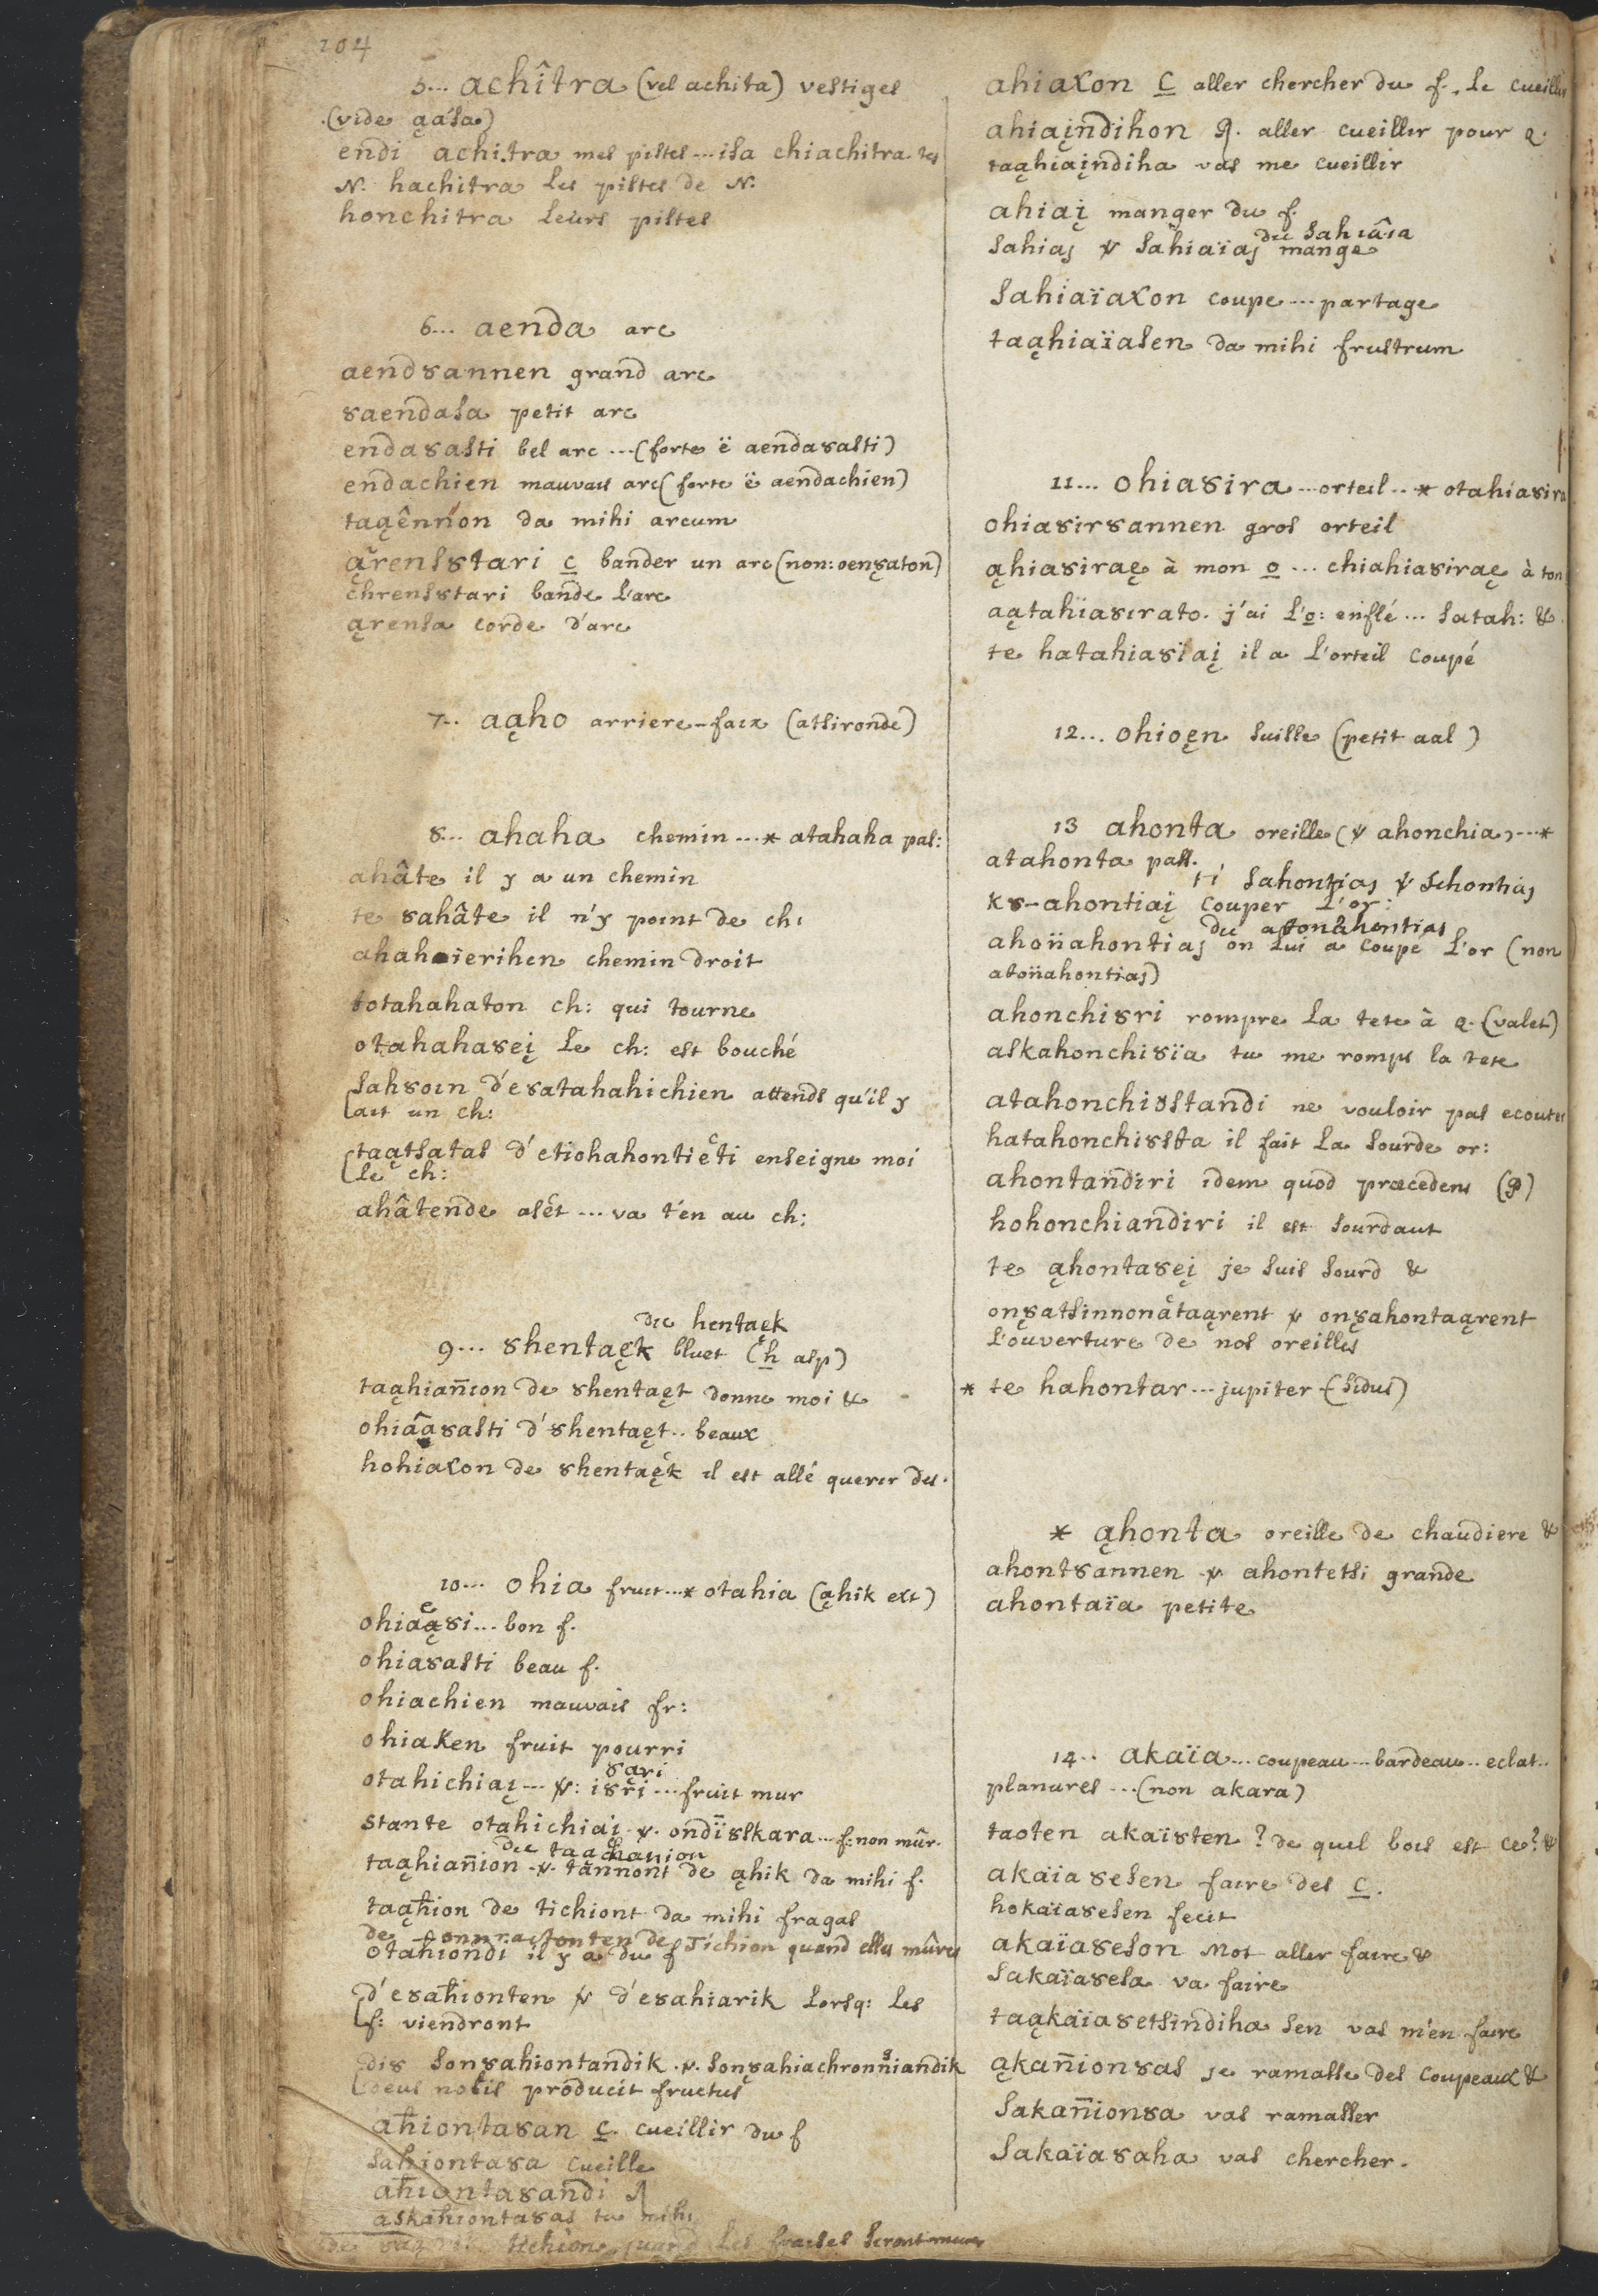 104
5... achîtra (vel achita) vestiges
(vide ąa'sa)
endi achitra mes pistes ... isa chiachitra tes
N. hachitra les pistes de N.
honchitra leurs pistes
6... aenda arc
aend8annen grand arc
8aendasa petit arc
enda8asti bel arc ... (forte ë aenda8asti)
endachien mauvais arc (forte ë aendachien)
taąênn'on da mihi arcum
ąrens8tari c bander un arc (non: oen8aton)
chrens8tari bande l'arc
ąrensa corde d'arc
7.. aąho arriere-faix (atsironde)
8... ahaha chemin ...* atahaha pas:
ahâte il y a un chemin
te 8ahâte il n'y point de ch:
ahahaierihen chemin droit
totahahaton ch: qui tourne
otahaha8eį le ch: est bouché
sah8oin d'e8atahahichien attends qu'il y
ait un ch:
taątsatas d'etiohahontieti enseigne moi
le ch:
ahâtende aset ... va t'en au ch:
dic hentaęk
9... 8hentaęk bluet (h asp)
taąhiañion de 8hentaęt donne moi &
ohiâą8asti d'8hentaęt.. beaux
hohiaxon de 8hentaęk il est allé querir des.
10... ohia fruit...* otahia (ąhik ext)
ohiaą8i... bon f.
ohia8asti beau f.
ohiachien mauvais fr:
ohiaKen fruit pourri
8ari
otahichiaį ... v: i8ri ... fruit mur
stante otahichiai v. ondï8skara ... f: non mûr.
dic taąhanion
taąhiañion v. tannont de ąhik da mihi f.
taąhion de tichiont da mihi fragas
otahiondi il y a du f Tichion quand elles mûres
d'e8ahionten v d'e8ahiarik lorsq: les
f: viendront
di8 son8ahiontandik v. son8ahiachronniandik
deus nobis producit fructus
ahionta8an c. cueillir du f
sahionta8a cueille
ahionta8andi
askahionta8as tu mihi
ahiaxon c aller chercher du f., le cueillir
ahiaįndihon q. aller cueillir pour q.
taąhiaįndiha vas me cueillir
ahiaį manger du f.
dic sahiâia
sahiaį v sahiaïaį mange
sahiaïaxon coupe ... partage
taąhiaïasen da mihi frustrum
11... ohia8ira ... orteil .. * otahia8ira
ohia8ir8annen gros orteil
ąhia8iraę à mon o ... chiahia8iraę à ton
aątahïa8irato. j'ai l'o: enflé ... satah: &
te hatahia8ïaį il a l'orteil coupé
12... ohioęn suille (petit aal)
13 ahonta oreille (v ahonchia) ...*
atahonta pass.
ti sahontįaį v sehontiaį
k8-ahontiaį couper l'or:
ahoñahontiaį on lui a coupe l'or (non
atoñahontias)
ahonchi8ri rompre la tete à q. (valet)
askahonchi8ïa tu me romps la tete
atahonchi8standi ne vouloir pas ecouter
hatahonchi8sta il fait la sourde or:
ahontandiri idem quod præcedens
hohonchiandiri il est sourdaut
te ąhonta8eį je suis sourd &
on8atsinnonątaąrent v on8ahontaąrent
l'ouverture de nos oreilles
* te hahontar ... jupiter (sidus)
* ąhonta oreille de chaudiere &
ahont8annen v ahontetsi grande
ahontaïa petite
14.. akaïa ... coupeau ... bardeau .. eclat..
planures ... (non akara)
taoten akaï8ten? de quel bois est ce? &
akaia8esen faire des c.
hokaïa8esen fecit
akaïa8eson Mot aller faire &
sakaïa8esa va faire
taąkaïa8etsindiha sen vas m'en faire
ąkañion8as je ramasse des coupeaux &
sakañion8a vas ramasser
sakaïa8aha vas chercher.